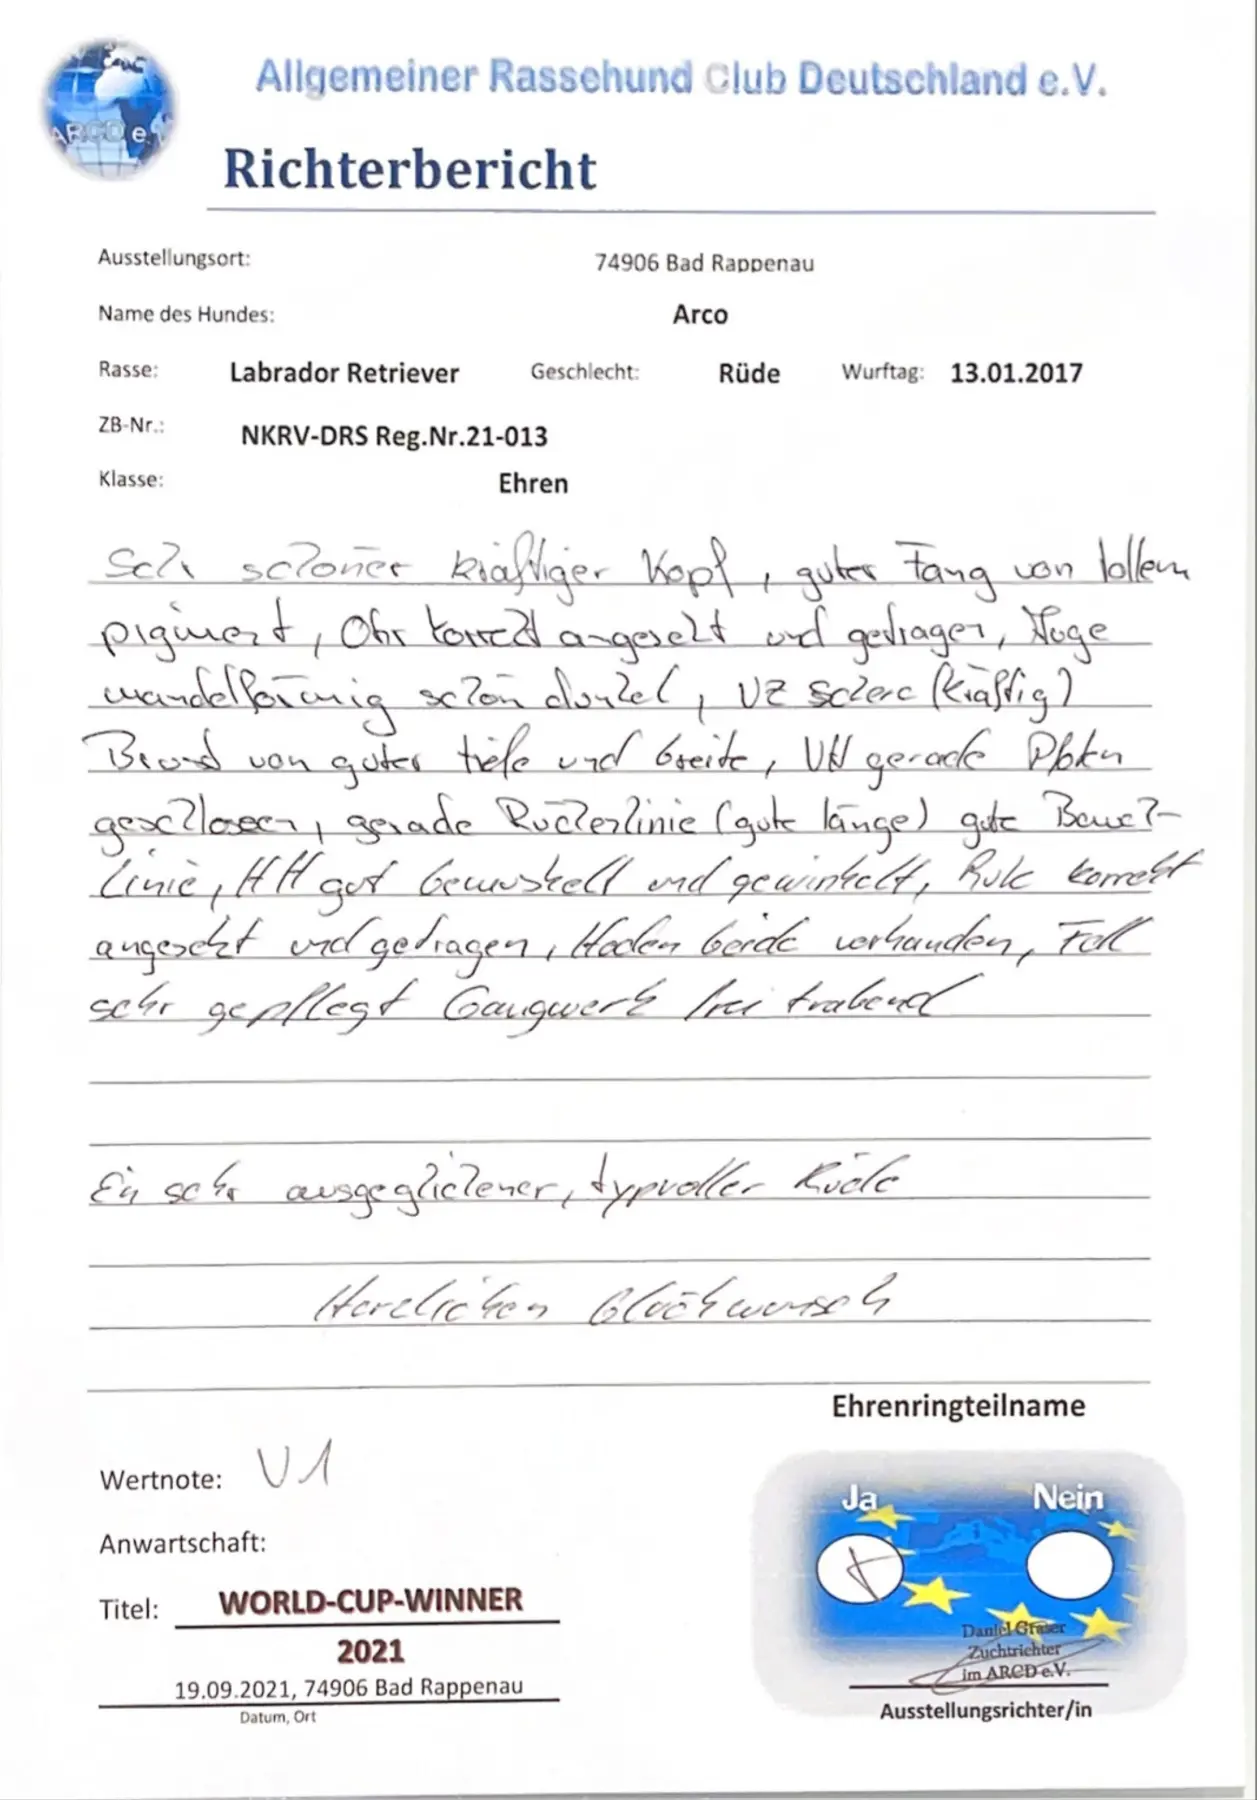 Allgemeiner Rassehund Club Deutschland e.V.
ARCD e.V.
Richterbericht
Ausstellungsort: 74906 Bad Rappenau
Name des Hundes: Arco
Rasse: Labrador Retriever Geschlecht: Rüde Wurftag: 13.01.2017
ZB-Nr.: NKRV-DRS Reg.Nr.21-013
Klasse: Ehren
Sehr schöner kräftiger Kopf, guter Fang von tollem
pigment, Ohr korrekt angesetzt und getragen, Auge
mandelförmig schön dunkel, VZ Schere (kräftig)
Brust von guter tiefe und breite, VH gerade Pfoten
geschlossen, gerade Rückenlinie (gute länge) gute Bauch-
Linie, HH gut bemuskelt und gewinkelt, Rute korrekt
angesetzt und getragen, Hoden beide vorhanden, Fell
sehr gepflegt Gangwerk frei trabend
Ein sehr ausgeglichener, typvoller Rüde
Herzlichen Glückwunsch
Ehrenringteilname
Ja Nein
Wertnote: V1
Anwartschaft:
Titel: WORLD-CUP-WINNER
2021
19.09.2021, 74906 Bad Rappenau
Datum, Ort
Daniel
Zuchtrichter
im ARCD e.V.
Ausstellungsrichter/in